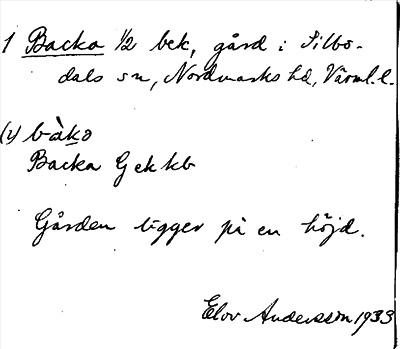 1 Backa ½ bek, gård i Silbo-
dals sn, Nordmarks hd, Värml. l.
(1) bàko
Backa G ek kb
Gården ligger på en höjd.
Elov Andersson 1933